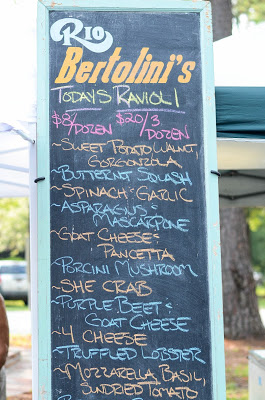 Rio
Bertolini's
Today's Ravioli
$8/ $20/3
Dozen Dozen
~Sweet Potato Walnut,
Gorgonzola
~Butternut Squash
~Spinach & Garlic
~Asparagus
Mascarpone
~Goat Cheese &
Pancetta
~Porcini Mushroom
~She Crab
~Purple Beet &
Goat Cheese
~4 Cheese
~Truffled Lobster
~Mozzarella, Basil,
Sundried Tomato